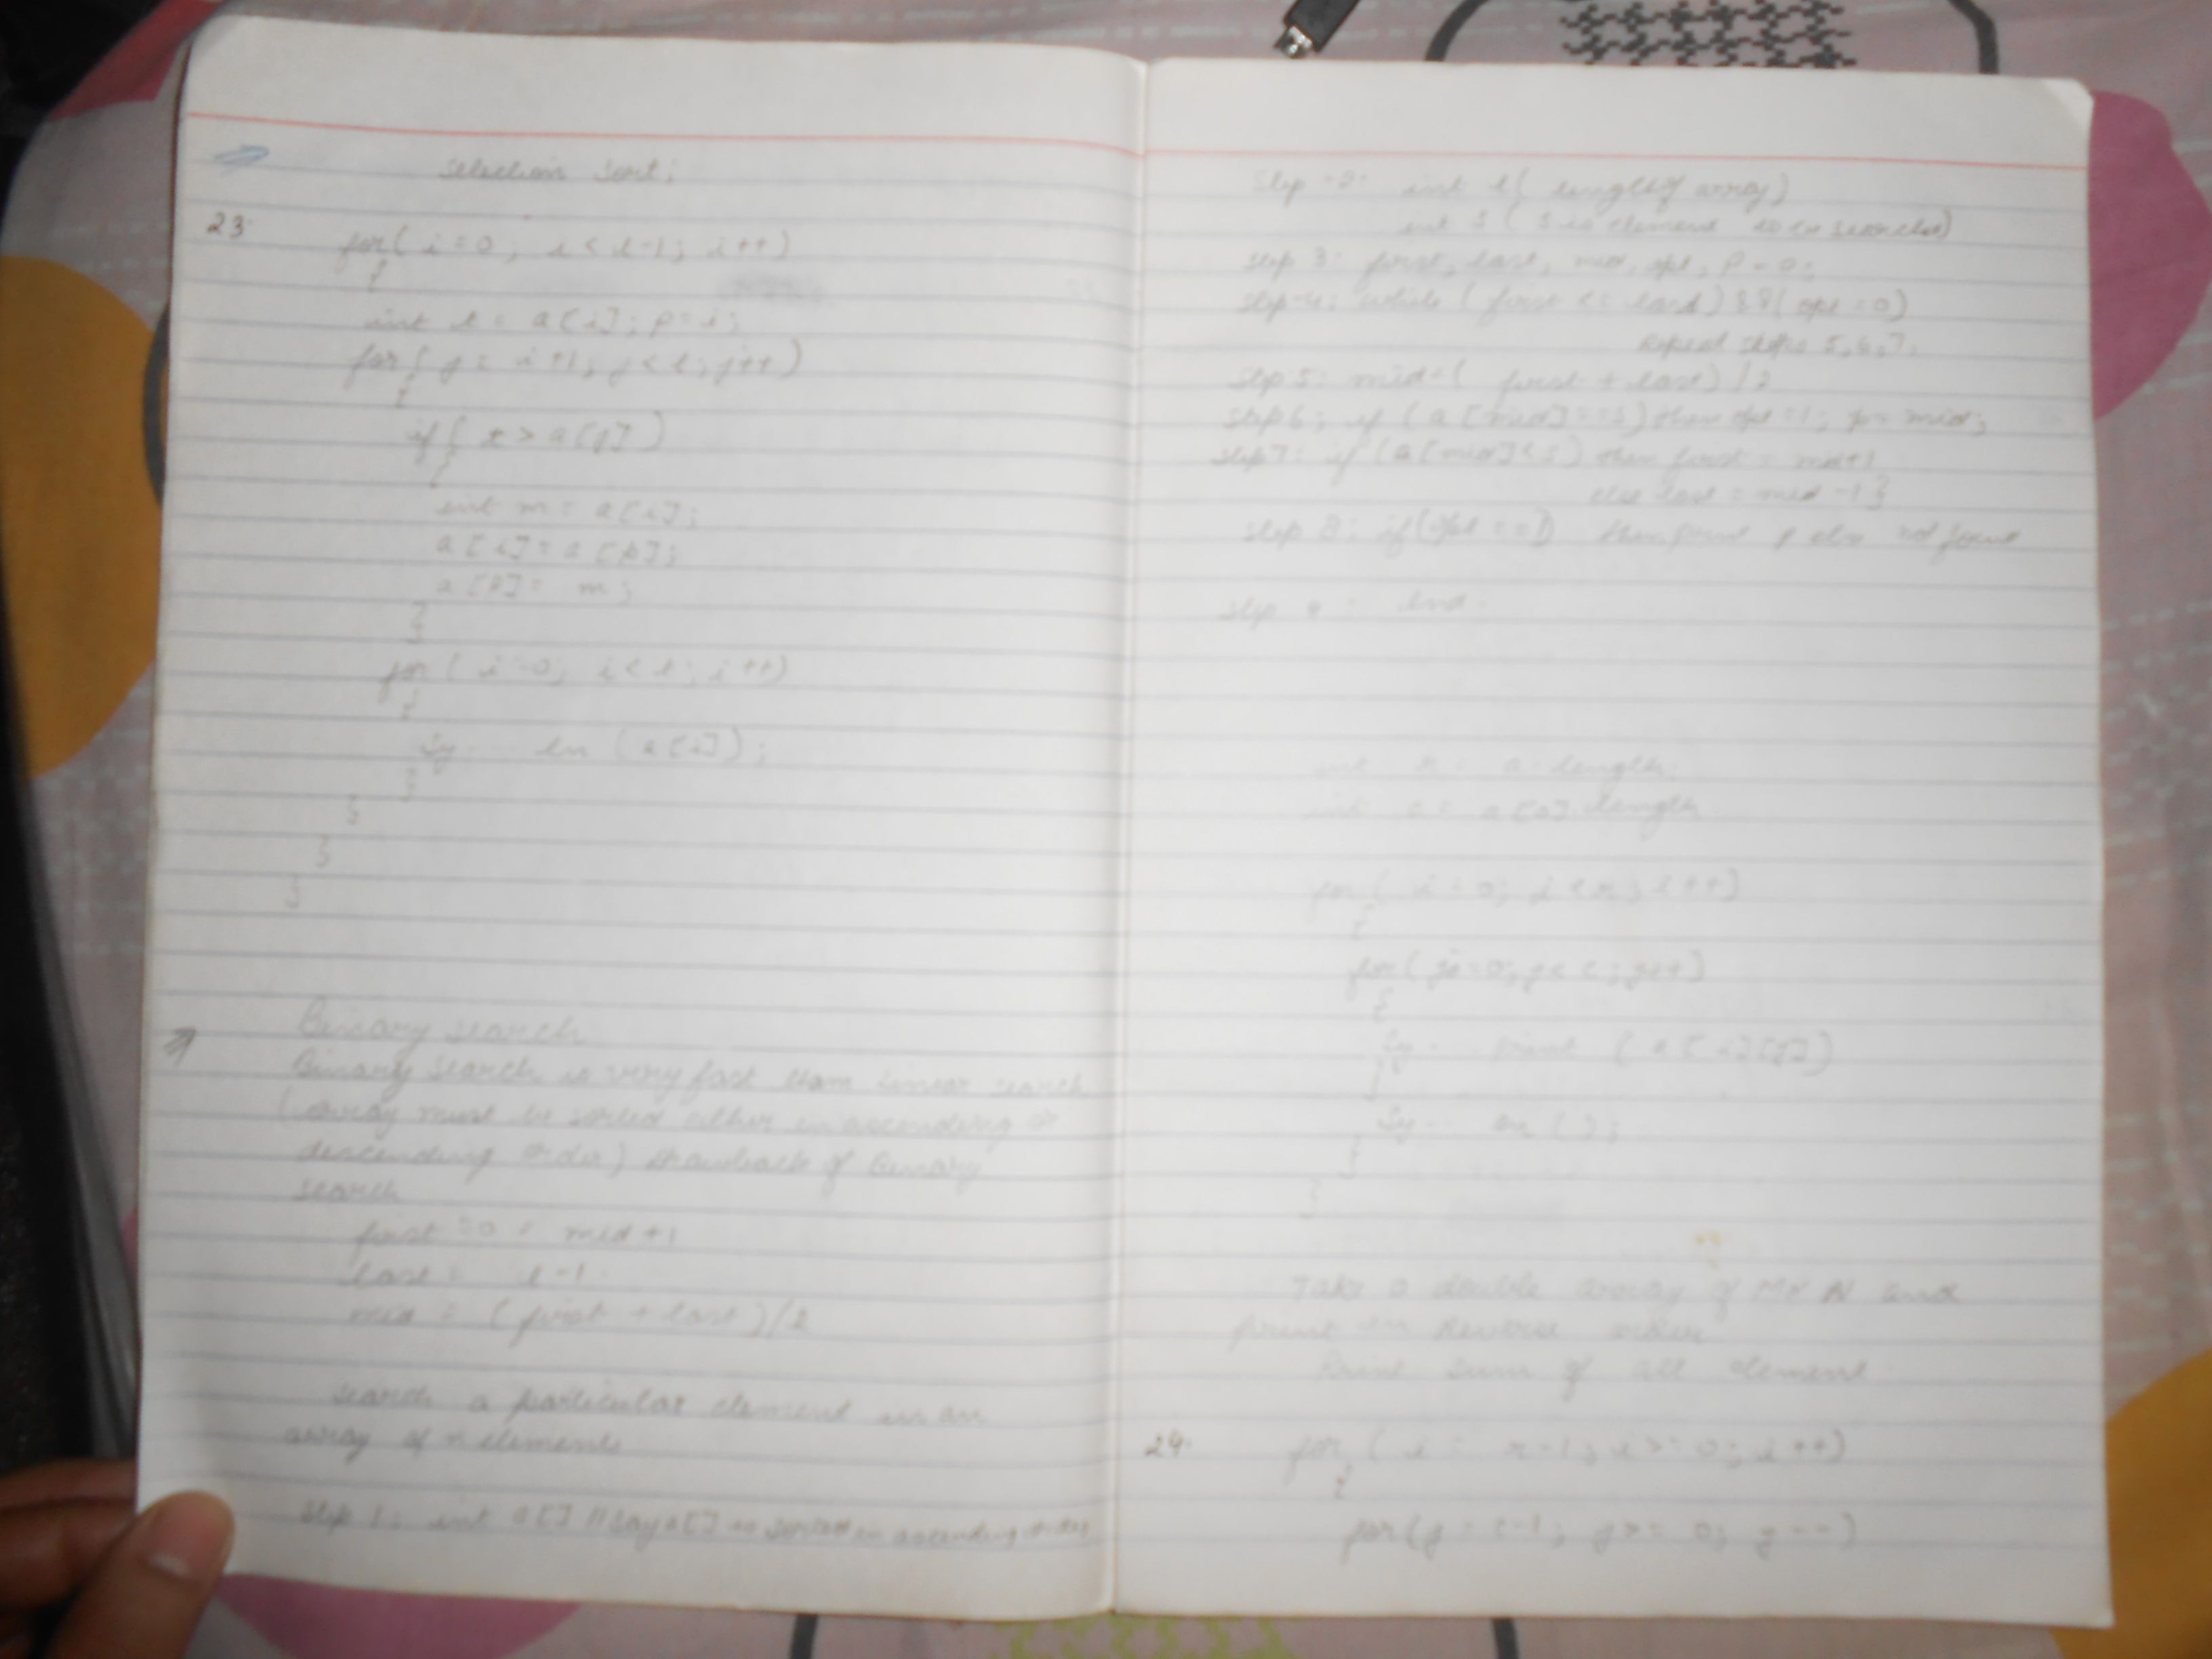 Selection Sort;
23. for( i = 0 ; i < l-1 ; i++)
{
int t = a[i]; p=i;
for( j = i+1 ; j < l ; j++)
{
if( t > a[j] )
{
int m = a[i];
a[i] = a[p];
a[p] = m ;
}
}
for( i=0; i < l ; i++)
{
Sy... ln (a[i]);
}
}
}
}
Binary search
Binary search is very fast than linear search
(array must be sorted either in ascending or
descending order) Drawback of Binary
search
first = 0 = mid+1
last = l-1
mid = (first + last)/2
Search a particular element in an
array of n elements
Step 1: int a[] // say a[] is sorted in ascending order
Step-2: int l ( length of array)
int S ( S is element to be searched)
Step 3: first, last, mid, opt, P = 0;
Step-4: while (first <= last) && (opt = 0)
Repeat steps 5,6,7.
Step 5: mid = ( first + last) / 2
Step 6; if (a[mid]==S) then opt =1; p= mid;
Step 7: if (a[mid]<S) then first = mid+1
else last = mid -1 }
Step 8: if(opt ==1) then print p else not found
Step 9: End.
int r = a.length.
int c = a[0].length
for( i = 0; i < r; i++)
{
for( j=0; j< c ; j++)
{
Sy... print ( a[i][j])
}
Sy... ln ( );
}
}
Take a double array of M x N and
print in Reverse order
Print sum of all element.
24. for ( i = r-1 ; i >= 0; i++)
{
for(j = c-1 ; j >= 0; j--)